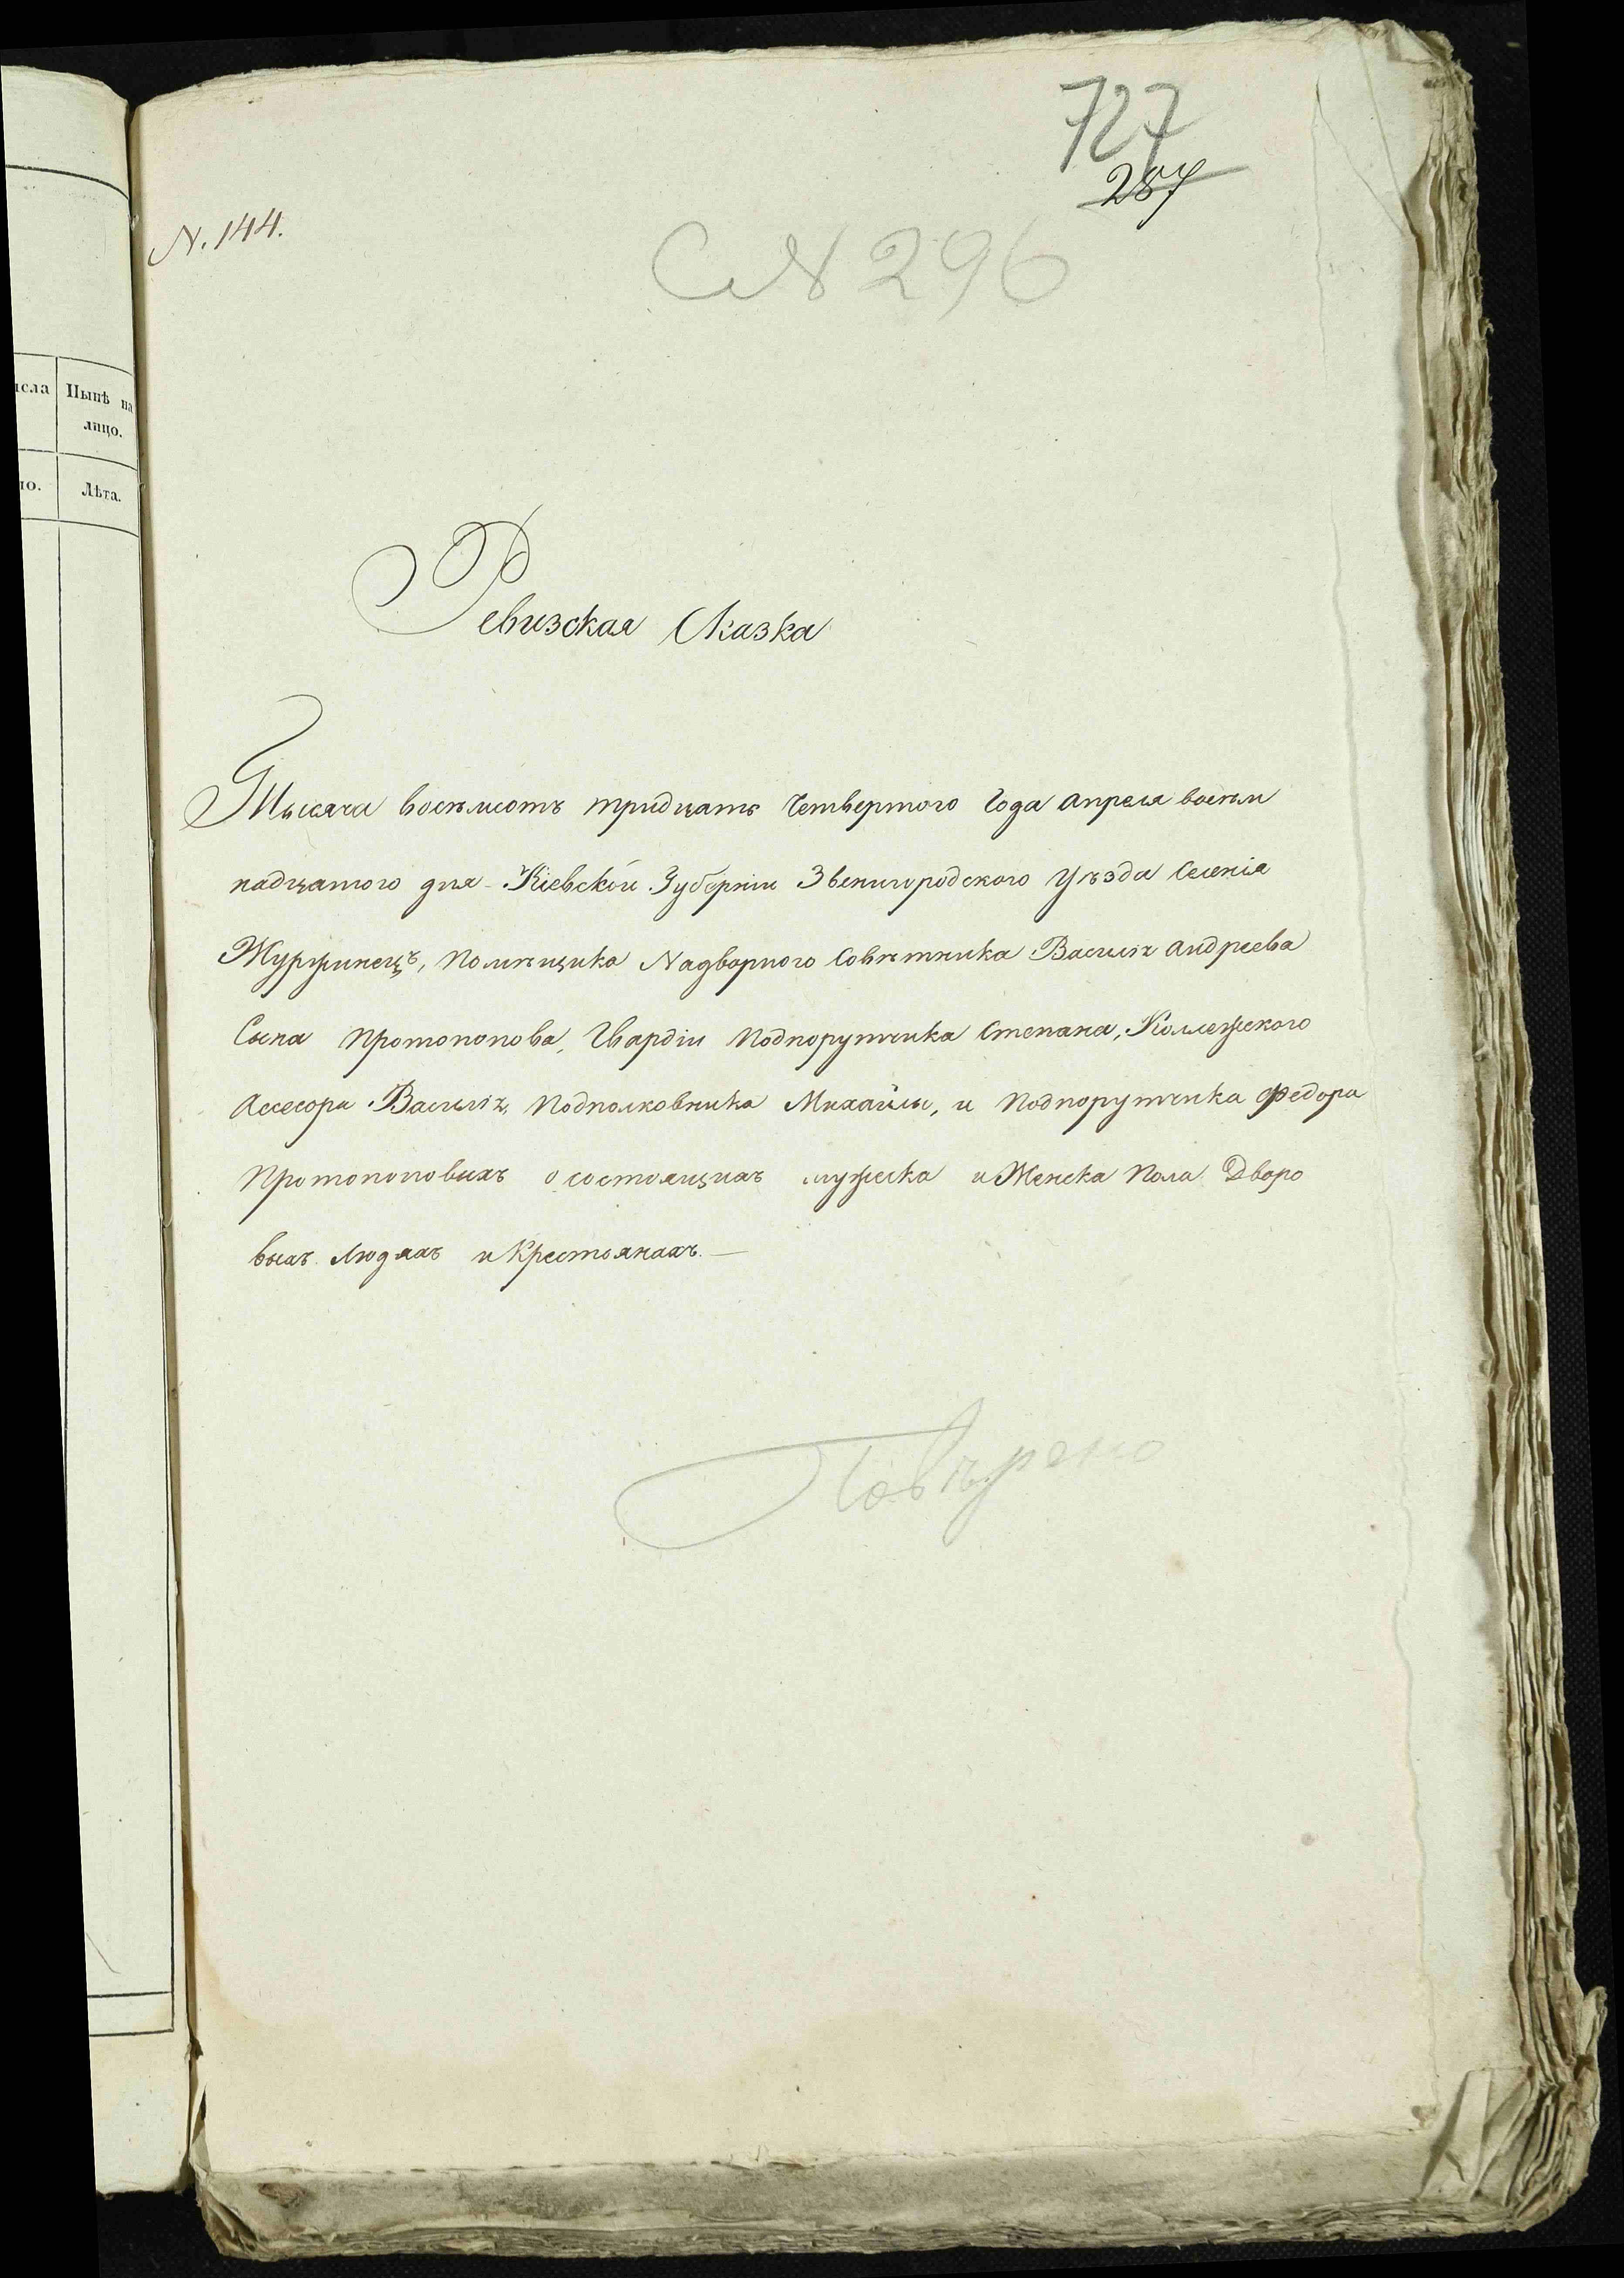 727
287
N. 144.
С № 296
исла
Нынѣ на
лицо.
ло.
Лѣта.
Ревизская Сказка
Тысяча восѣмсотъ тридцать Четвертого Года Апреля восѣм
надцатого дня Кіевской Губерніи Звенигородского Уѣзда Селенія
Журжинецъ, Помѣщика Надворного Совѣтника Василія Андреева
Сына Протопопова, Гвардіи Подпорутчика Степана, Колежского
Ассесора Василія, Подполковника Михайлы, и Подпорутчика Федора
Протопоповыхъ о состоящихъ мужеска и Женска Пола Дворо
выхъ Людяхъ и Крестьянахъ.
Повѣрено